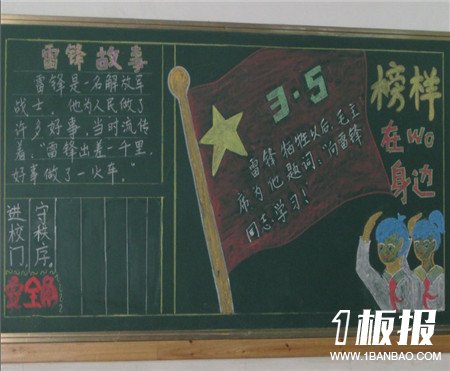 雷锋故事
雷锋是一名解放军
战士。他为人民做了
许多好事，当时流传
着：“雷锋出差一千里，
好事做了一火车。”
进校门，
守秩序。
安全
3·5
雷锋牺牲以后，毛主
席为他题词：向雷锋
同志学习！
榜样
在wo
身边
1板报
WWW.1BANBAO.COM